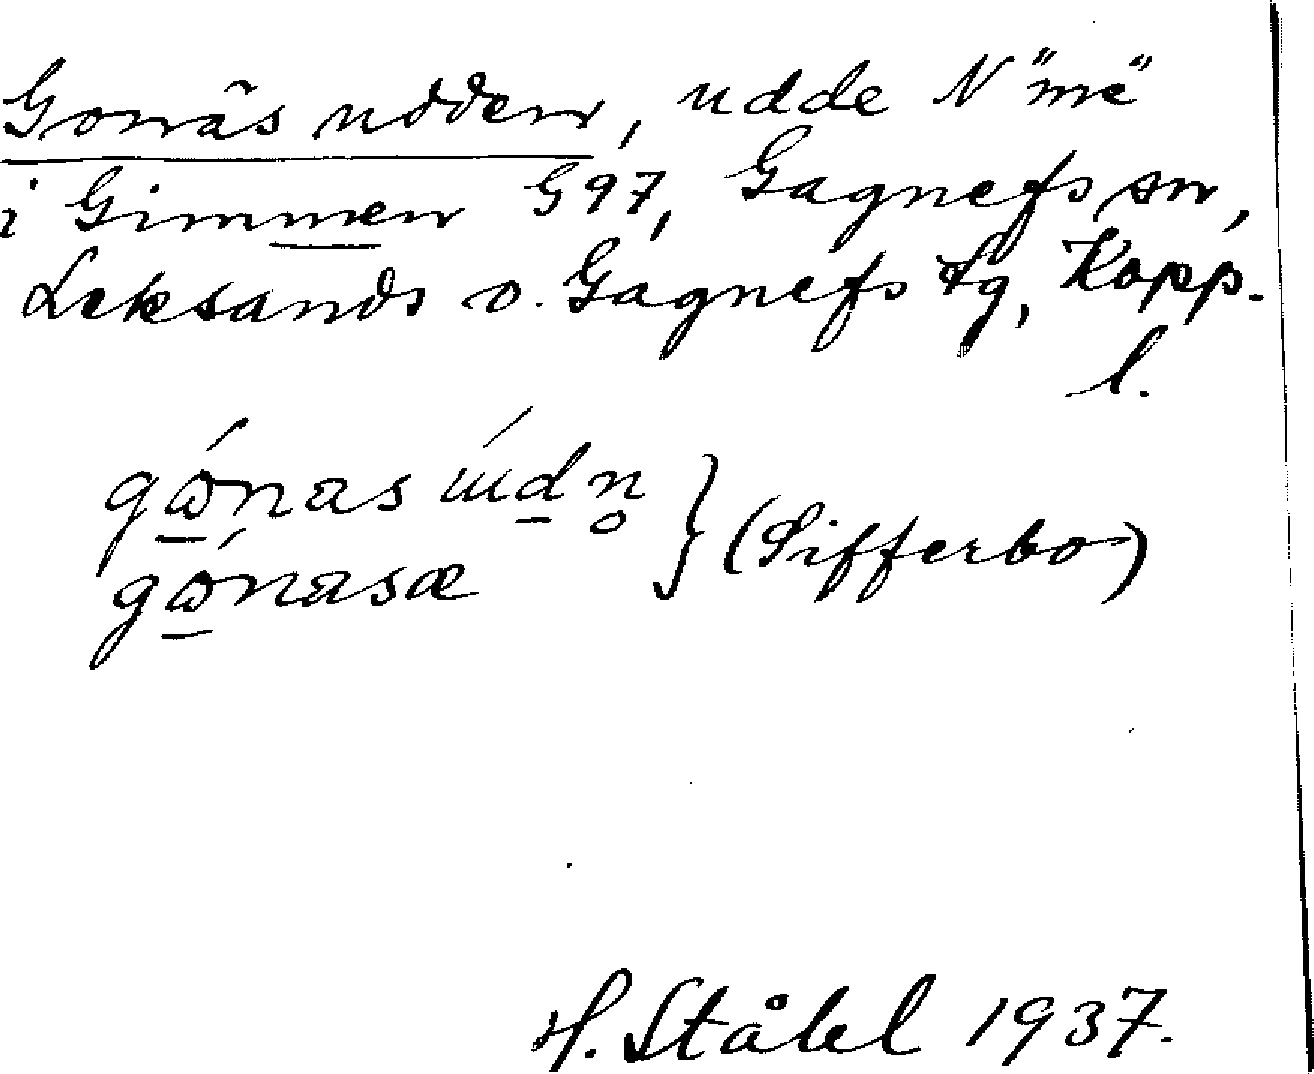 Gonäs udden, udde N "me"
i Gimmen G 97, Gagnefs sn,
Leksands o. Gagnefs tg, Kopp.
l.
(Sifferbo)
H. Ståhl 1937.